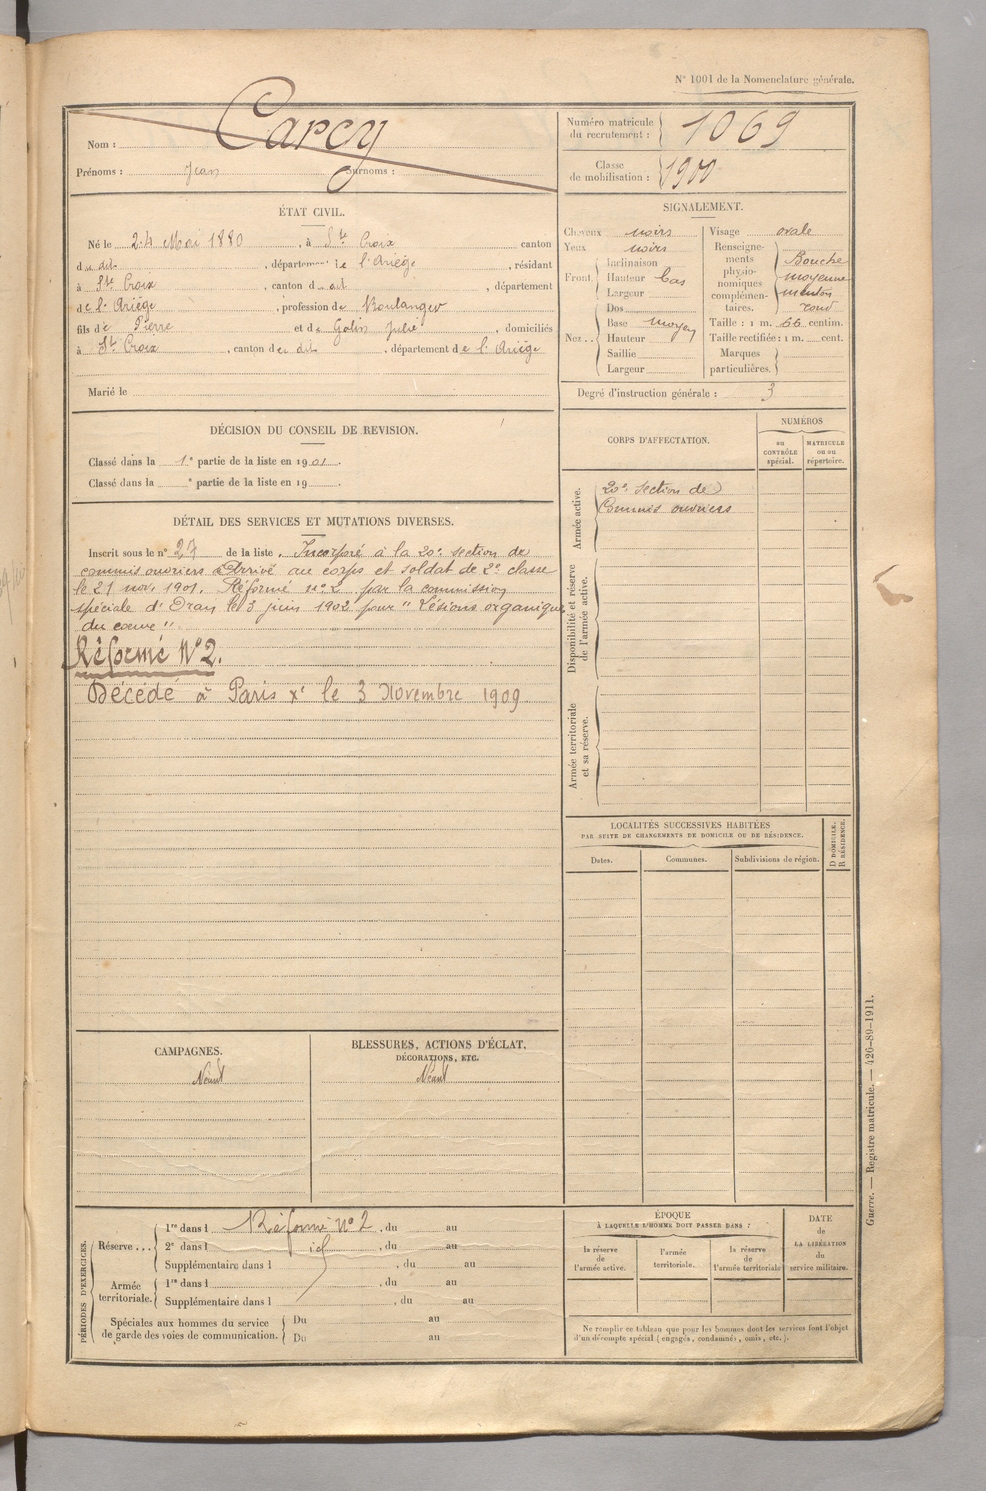 N° 1001 de la Nomenclature générale.
Nom : Carcy
Prénoms : Jean Surnoms :
Numéro matricule du recrutement : 1069
Classe de mobilisation : 1900
ÉTAT CIVIL.
Né le 24 Mai 1880, à Ste Croix canton
du dit, département de l'Ariège, résidant
à Ste Croix, canton du dit, département
de l'Ariège, profession de Boulanger
fils de Pierre et de Galin Julie, domiciliés
à Ste Croix, canton du dit, département de l'Ariège
Marié le
SIGNALEMENT.
Cheveux noirs
Yeux noirs
Front. Inclinaison
Hauteur bas
Largeur
Nez.. Dos
Base moyen
Hauteur
Saillie
Largeur
Visage ovale
Renseignements physionomiques complémentaires. Bouche
moyenne
menton
rond
Taille : 1 m. 66 centim.
Taille rectifiée : 1 m. cent.
Marques particulières.
Degré d'instruction générale : 3
DÉCISION DU CONSEIL DE REVISION.
Classé dans la 1e partie de la liste en 1901.
Classé dans la e partie de la liste en 19 .
DÉTAIL DES SERVICES ET MUTATIONS DIVERSES.
Inscrit sous le n° 27 de la liste. Incorporé à la 20e section de
commis ouvriers Arrivé au corps et soldat de 2e classe
le 21 nov. 1901. Réformé n° 2 par la commission
spéciale d'Oran le 3 juin 1902 pour "Lésions organiques
du coeur".
Réformé N°2.
Décédé à Paris xe le 3 Novembre 1909
CORPS D'AFFECTATION.
NUMÉROS
au CONTRÔLE spécial.
MATRICULE ou au répertoire.
Armée active.
20e section de
Commis ouvriers
Disponibilité et réserve de l'armée active.
Armée territoriale et sa réserve.
LOCALITÉS SUCCESSIVES HABITÉES
PAR SUITE DE CHANGEMENTS DE DOMICILE OU DE RÉSIDENCE.
Dates.
Communes.
Subdivisions de région.
D DOMICILE.
R RÉSIDENCE.
CAMPAGNES.
Néant
BLESSURES, ACTIONS D'ÉCLAT,
DÉCORATIONS, ETC.
Néant
PÉRIODES D'EXERCICES.
Réserve ... 1re dans l Réformé N°2, du au
2e dans l id, du au
Supplémentaire dans l , du au
Armée territoriale. 1re dans l , du au
Supplémentaire dans l , du au
Spéciales aux hommes du service de garde des voies de communication. Du au
Du au
ÉPOQUE
À LAQUELLE L'HOMME DOIT PASSER DANS :
la réserve de l'armée active.
l'armée territoriale.
la réserve de l'armée territoriale
DATE de LA LIBÉRATION du service militaire.
Ne remplir ce tableau que pour les hommes dont les services font l'objet
d'un décompte spécial (engagés, condamnés, omis, etc.).
Guerre. — Registre matricule. — 426-89-1911.